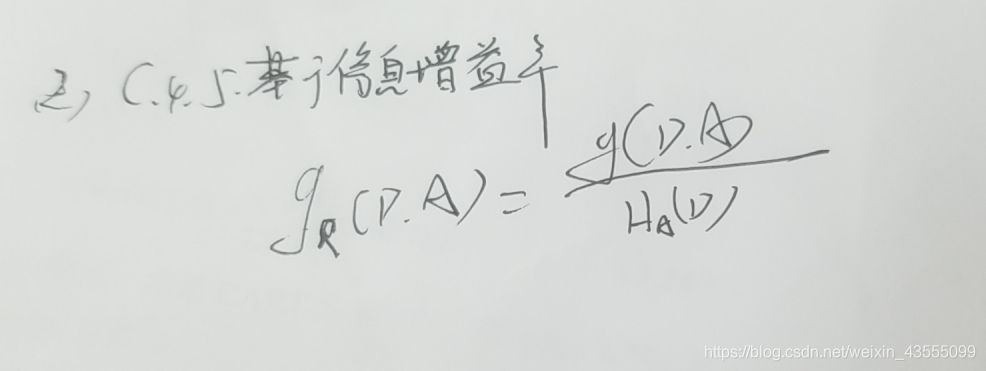 2) C.4.5.基于信息增益率
g_R(D.A) = g(D.A) / H_A(D)
https://blog.csdn.net/weixin_43555099